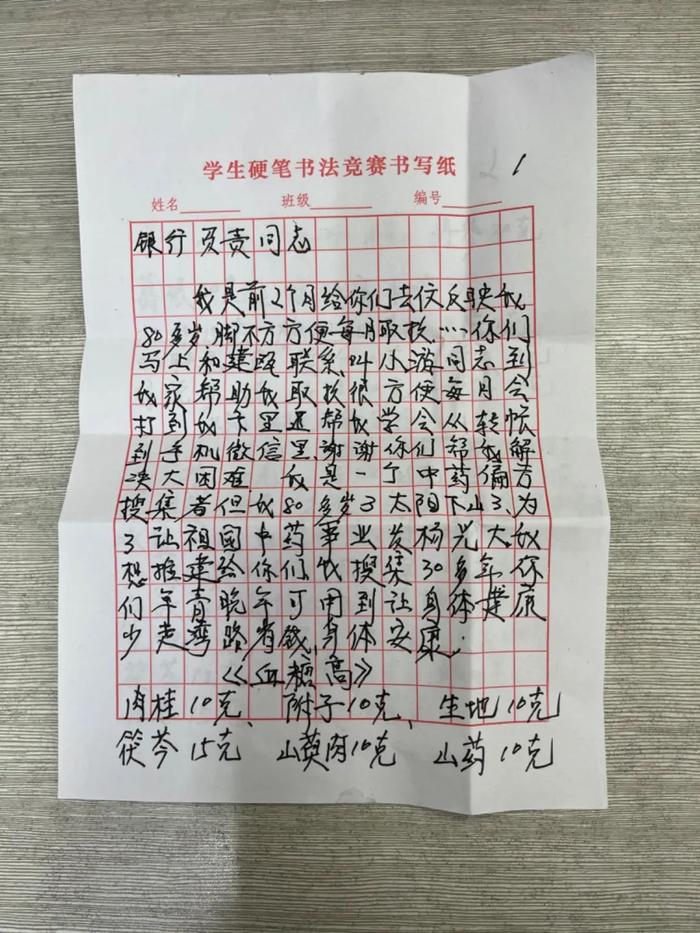 学生硬笔书法竞赛书写纸
1
姓名 班级 编号
银行负责同志
我是前2个月给你们去信反映我
80多岁脚不方便每月取钱……你们
马上和建 联系叫小游同志到
我家帮助我取钱很方便每月会
打到我卡里还帮我学会从转帐
到手机微信里.谢谢你们帮我解
决大困难. 我是一个中药偏方
搜集者但我80多岁了太阳下山了、为
了让祖国中药事业发杨光大.我
想推建给你们.我搜集30多年你
们年青晚年可用到让身体健康
少走弯路省钱.身体安康.
《血糖高》
肉桂10克、附子10克、生地10克
茯苓15克 山萸肉10克 山药10克